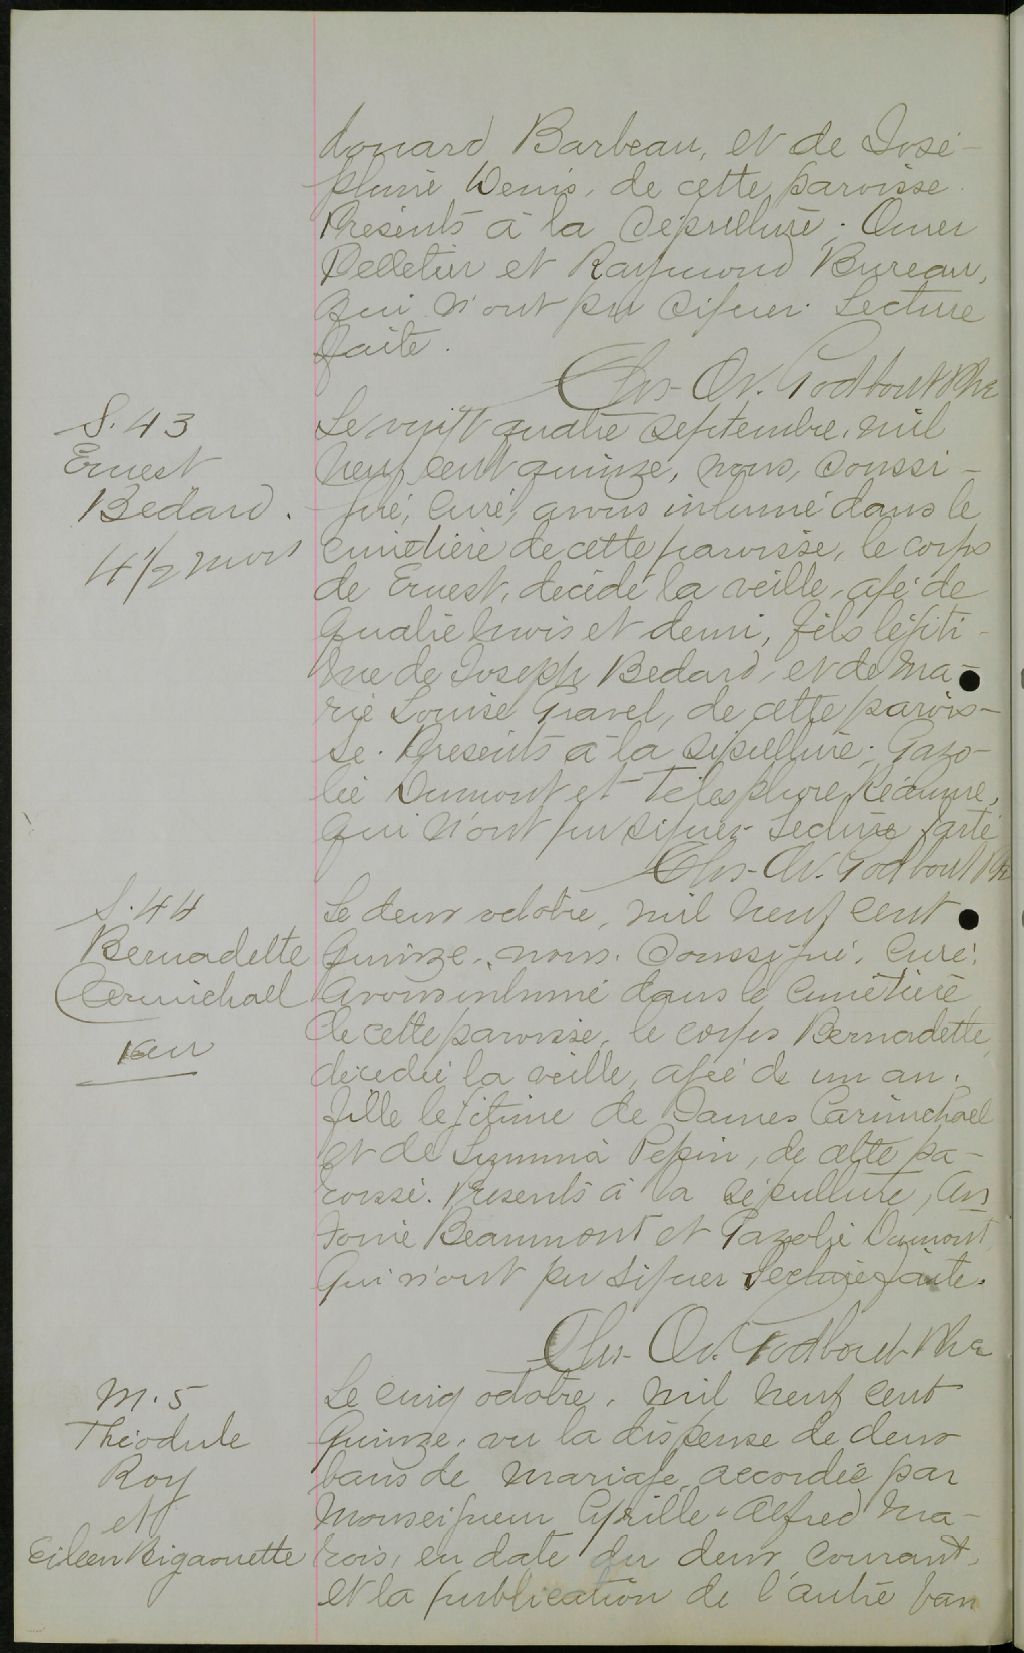 douard Barbeau, et de José-
phine Denis, de cette paroisse.
Présents à la sépulture; Omer
Pelletier et Raymond Bureau,
qui n'ont pu signer. Lecture
faite.
Chs-Ov. Godbout Ptre
S. 43
Ernest
Bedard.
4 1/2 mois
Le vingt quatre septembre, mil
neuf cent quinze, nous, soussi-
gné, curé, avons inhumé dans le
cimetière de cette paroisse, le corps
de Ernest, décédé la veille, agé de
quatre mois et demi, fils légiti-
me de Joseph Bedard, et de Ma-
rie Louise Gravel, de cette parois-
se. Présents à la sépulture; Gazo-
lie Dumont et Télesphore Réaume,
qui n'ont pu signer. Lecture faite
Chs-Ov. Godbout Ptre
S. 44
Bernadette
Carmichael
1 an
Le deux octobre, mil neuf cent
quinze, nous, soussigné, curé,
avons inhumé dans le cimétière
de cette paroisse, le corps Bernadette,
décédée la veille, agée de un an,
fille légitime de James Carmichael
et de Pepin, de cette pa-
roisse. Présents à la sépulture, An
tonie Beaumont et Gazolie Dumont,
qui n'ont pu signer Lecture faite.
Chs-Ov. Godbout Ptre
M. 5
Théodule
Roy
et
Eileen Bigaouette
Le cinq octobre, mil neuf cent
quinze, vu la dispense de deux
bans de mariage accordée par
Monseigneur Cyrille-Alfred Ma-
rois, en date du deux courant,
et la publication de l'autre ban